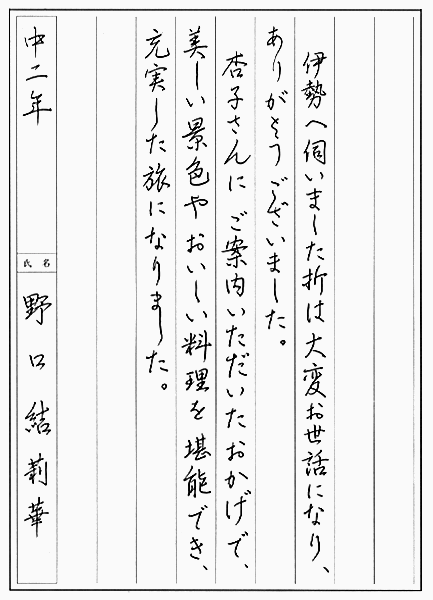 伊勢へ伺いました折は大変お世話になり、
ありがとうございました。
杏子さんにご案内いただいたおかげで、
美しい景色やおいしい料理を堪能でき、
充実した旅になりました。
中二年
氏名
野口結莉華